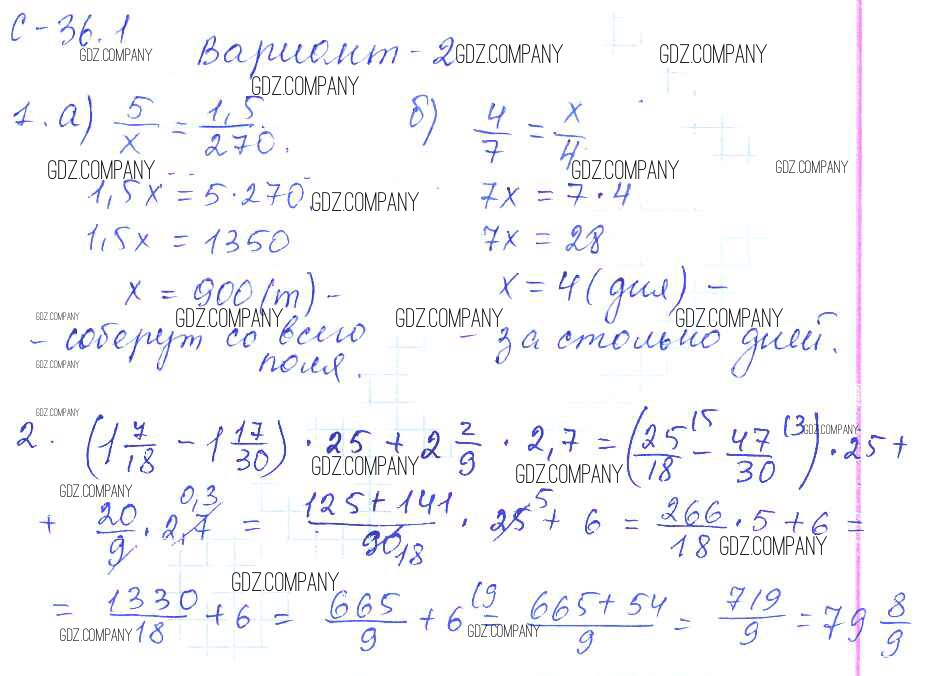 С-36.1
GDZ.COMPANY
Вариант-2 GDZ.COMPANY GDZ.COMPANY
GDZ.COMPANY
1. а) 5/x = 1,5/270. б) 4/7 = x/4
GDZ.COMPANY GDZ.COMPANY GDZ.COMPANY
1,5x = 5·270 GDZ.COMPANY 7x = 7·4
1,5x = 1350 7x = 28
x = 900 (т) - x = 4 (дня) -
GDZ.COMPANY GDZ.COMPANY GDZ.COMPANY GDZ.COMPANY
- соберут со всего - за столько дней.
поля.
GDZ.COMPANY
GDZ.COMPANY
2. (1 7/18 - 1 17/30) · 25 + 2 2/9 · 2,7 = (25/18 (5 - 47/30 (3) · 25 +
GDZ.COMPANY GDZ.COMPANY GDZ.COMPANY
GDZ.COMPANY
+ 20/9 · 2,7 0,3 = 125+141/90 18 · 25 5 + 6 = 266/18 · 5 + 6 =
GDZ.COMPANY
GDZ.COMPANY
= 1330/18 + 6 = 665/9 + 6 (9 = 665+54/9 = 719/9 = 79 8/9
GDZ.COMPANY GDZ.COMPANY